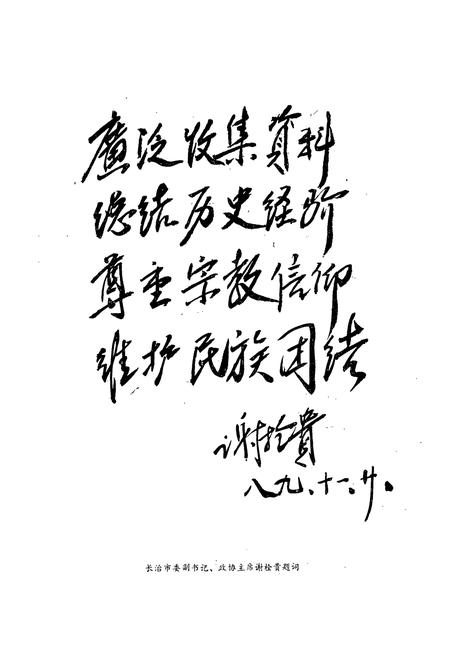 廣泛收集資料
總结历史经验
尊重宗教信仰
维护民族团结
谢栓貴
八九、十一、廿。
长治市委副书记、政协主席谢栓贵题词